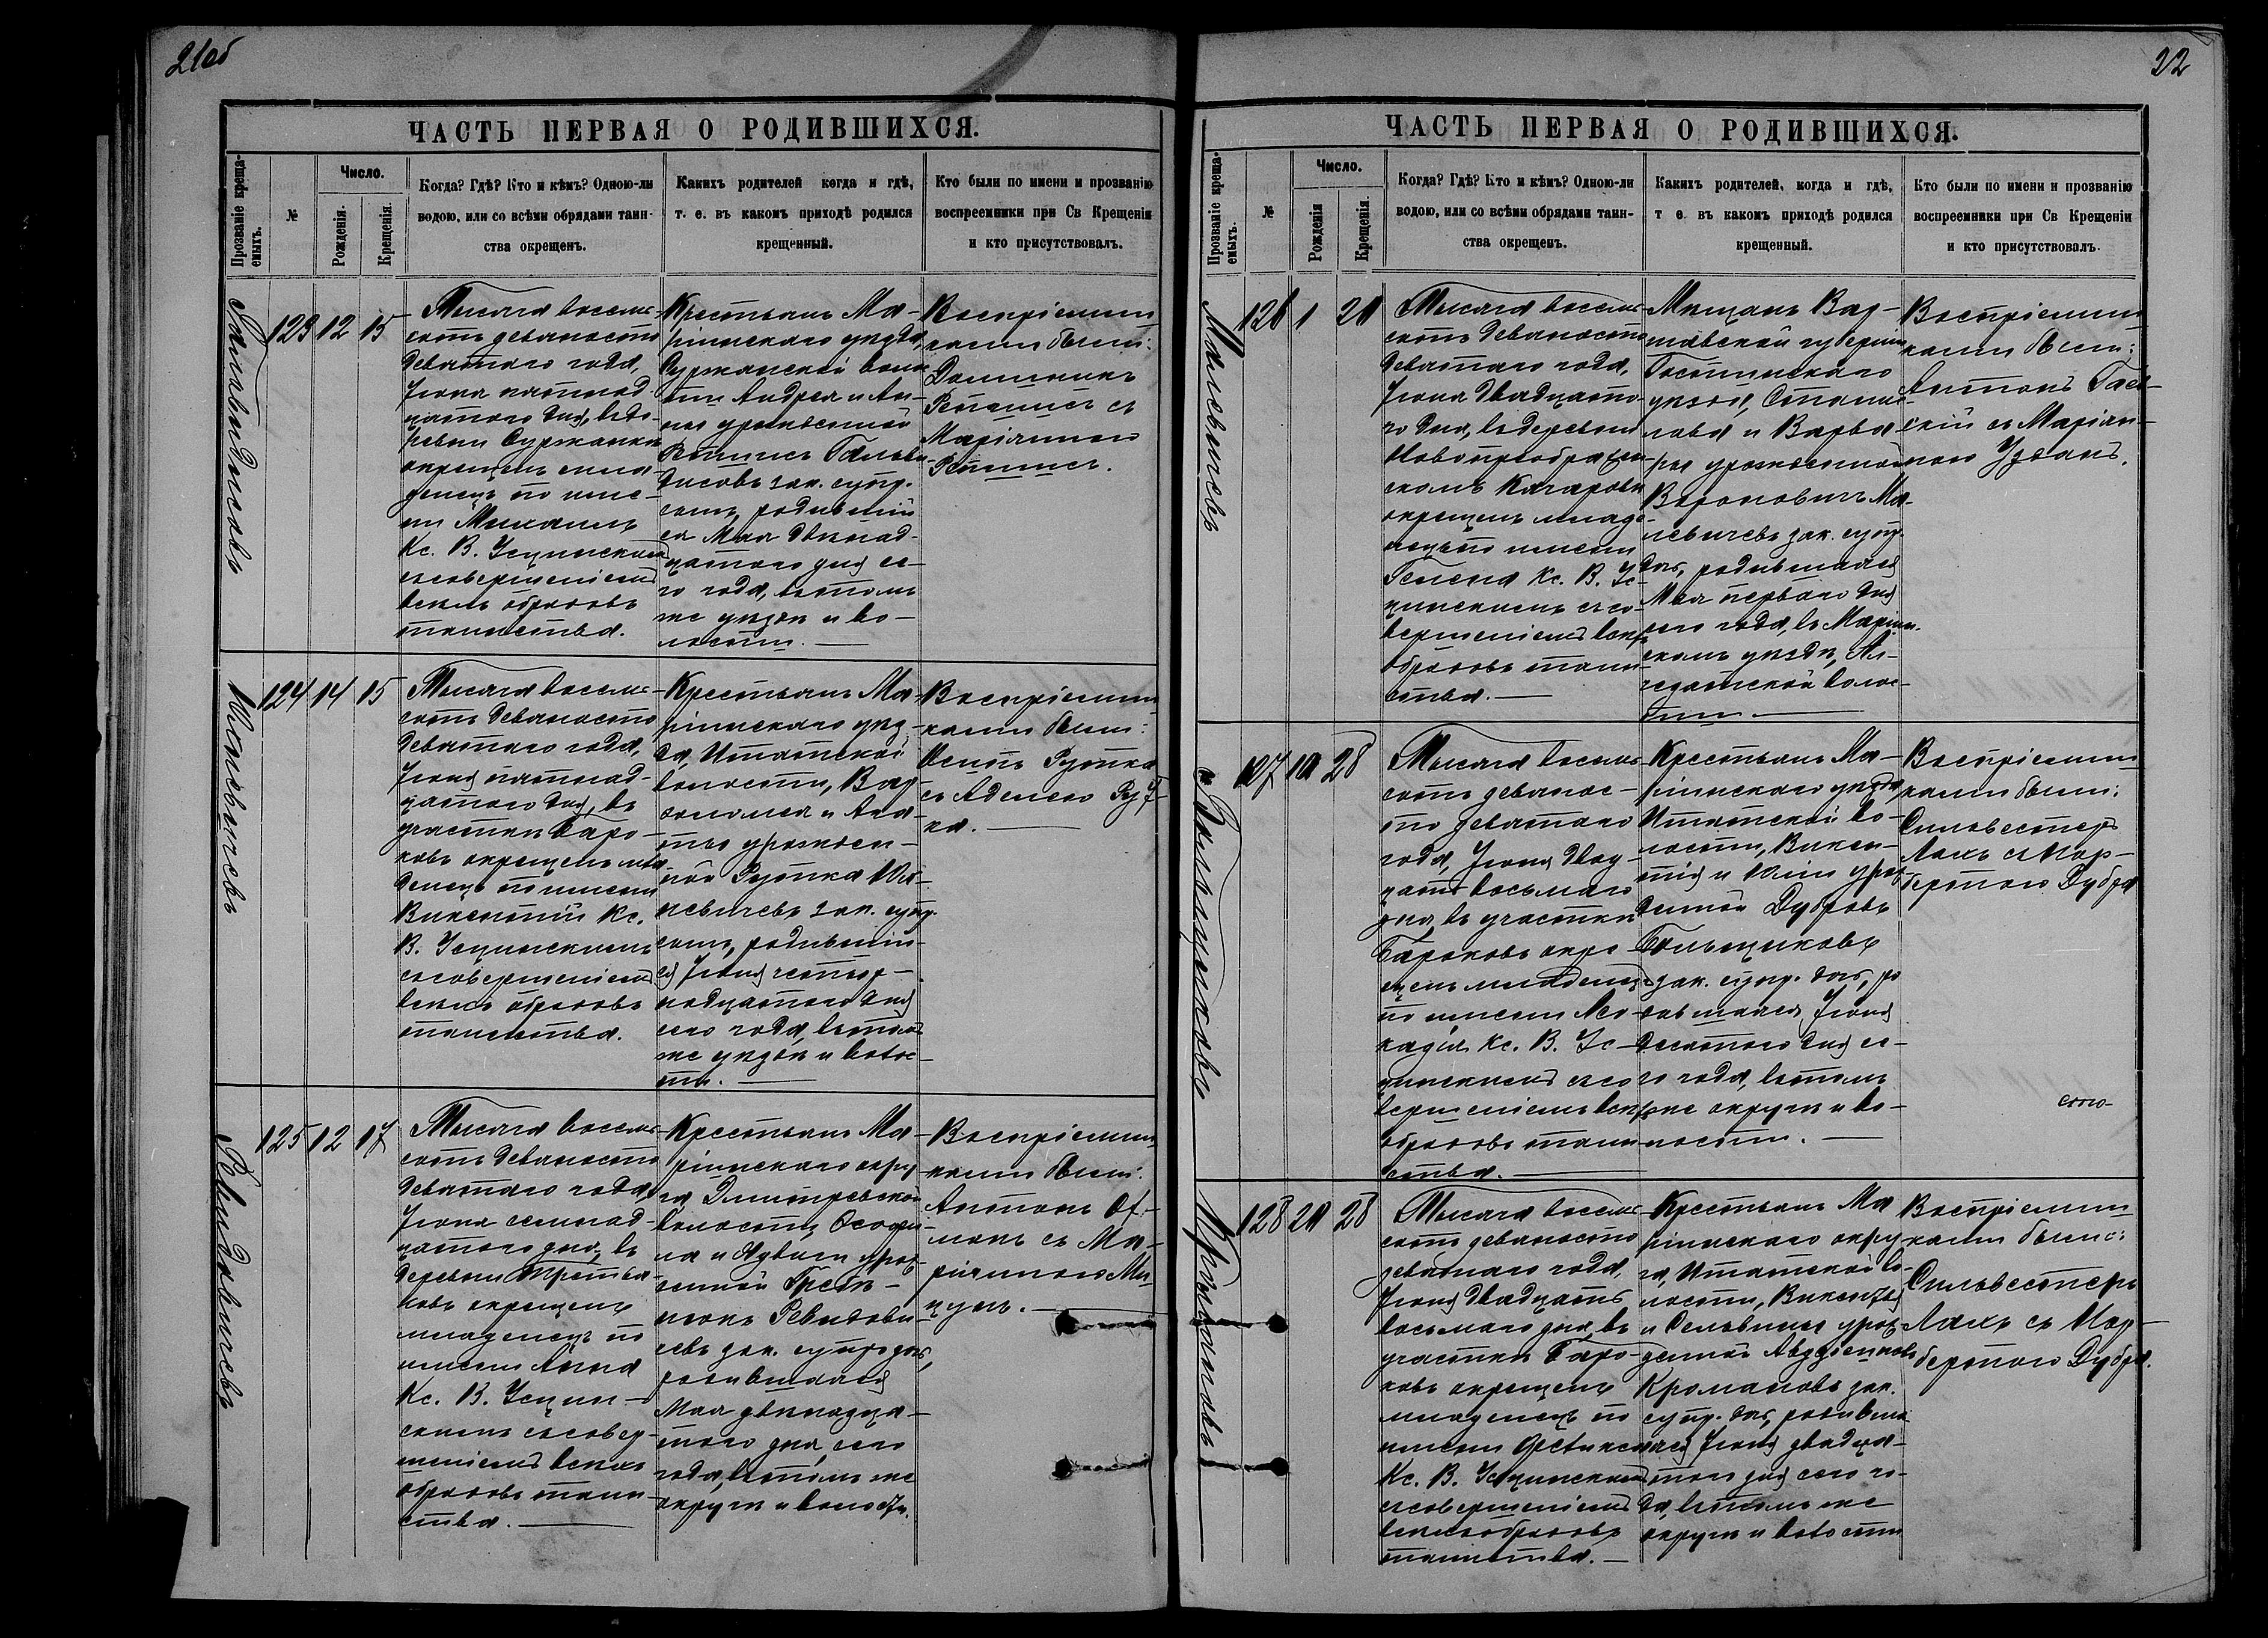 21об
ЧАСТЬ ПЕРВАЯ О РОДИВШИХСЯ.
Прозваніе креща-
емыхъ.
№
Число.
Рожденія.
Крещенія.
Когда? Гдѣ? Кто и кѣмъ? Одною-ли
водою, или со всѣми обрядами таин-
ства окрещенъ.
Какихъ родителей когда и гдѣ,
т. е. въ какомъ приходѣ родился
крещенный.
Кто были по имени и прозванію
воспреемники при Св Крещеніи
и кто присутствовалъ.
123 12 15
Тысяча восемь-
сотъ девяносто
девятаго года,
Іюня пятнад-
цатаго дня, въ де-
ревни Суржанки
окрещенъ мла-
денецъ по име-
ни Михаилъ
Кс. В. Усцинскимъ
съ совершеніемъ
всѣхъ обрядовъ
таинства.
Крестьянъ Ма-
ріинскаго уѣзда,
Суржанской воло-
сти Андрея и Ан-
ны урожденной
зак. супр.
сынъ, родившій-
ся Мая двѣнад-
цатаго дня се-
го года, въ томъ
же уѣздѣ и во-
лости.
Воспріемни-
ками были:
Доминикъ
съ
Маріянною
124 14 15
Тысяча восемь-
сотъ девяносто
девятаго года,
Іюня пятнад-
цатаго дня, въ
участкѣ Баро-
ковъ окрещенъ мла-
денецъ по имени
Викентій Кс.
В. Усцинскимъ
съ совершеніемъ
всѣхъ обрядовъ
таинства.
Крестьянъ Ма-
ріинскаго уѣз-
да, Итатской
волости, Вар-
ѳоломея и Ага-
ты урожден-
ной Рутка Юх-
невичевъ зак. супр.
сынъ, родившій-
ся Іюня четыр-
надцатаго дня
сего года, въ томъ
же уѣздѣ и волос-
ти.
Воспріемни-
ками были:
Осипъ Рутка
съ Аделею Рут-
ка.
125 12 17
Тысяча восемь-
сотъ девяносто
девятаго года,
Іюня семнад-
цатаго дня, въ
деревни Третья-
ковъ окрещенъ
младенецъ по
имени Анна
Кс. В. Усцин-
скимъ съ совер-
шеніемъ всѣхъ
обрядовъ таин-
ства.
Крестьянъ Ма-
ріинскаго окру-
га Дмитревской
волости,
и Ядвиги урож-
денной
зак. супр. дочь,
родившаяся
Мая двѣнадца-
таго дня, сего
года, въ томъ же
округѣ и волости.
Воспріемни-
ками были:
Антонъ
съ Ма-
ріянною
22
ЧАСТЬ ПЕРВАЯ О РОДИВШИХСЯ.
Прозваніе креща-
емыхъ.
№
Число.
Рожденія
Крещенія.
Когда? Гдѣ? Кто и кѣмъ? Одною-ли
водою, или со всѣми обрядами таин-
ства окрещенъ.
Какихъ родителей, когда и гдѣ,
т е. въ какомъ приходѣ родился
крещенный.
Кто были по имени и прозванію
воспреемники при Св Крещеніи
и кто присутствовалъ.
Малевичевъ
126 1 20
Тысяча восемь-
сотъ девяносто
девятаго года,
Іюня двадцата-
го дня, въ деревни
Новопреображен-
скомъ
окрещенъ младе-
нецъ по имени
Гелена Кс. В. Ус-
цинскимъ съ со-
вершеніемъ всѣхъ
обрядовъ таин-
ства.
Мѣщанъ Вар-
шавской губерніи
Гостинскаго
уѣзда, Станис-
лава и Варва-
ры урожденной
Вороновичъ Ма-
левичевъ зак. супр.
дочь, родившаяся
Мая перваго дня
сего года, въ Маріин-
скомъ уѣздѣ, Ал-
чедатской волос-
ти.
Воспріемни-
ками были:
Антонъ
съ Маріян-
ною
127 10 28
Тысяча восемь-
сотъ девянос-
то девятаго
года, Іюня двад-
цать восьмаго
дня, въ участкѣ
Бароковъ окре-
щенъ младенецъ
по имени Лео-
кадія Кс. В. Ус-
цинскимъ съ со-
вершеніемъ всѣхъ
обрядовъ таин-
ства.
Крестьянъ Ма-
ріинскаго уѣзда
Итатской во-
лости, Викен-
тія и Юліи урож-
денной Дубровъ
Больщиковъ
зак. супр. дочь, ро-
дившаяся Іюня
десятаго дня се-
го года, въ томъ
же округѣ и во-
лости.
Воспріемни-
ками были:
Сильвестеръ
Лахъ съ Нор-
бертою Дубра
128 20 28
Тысяча восемь-
сотъ девяносто
девятаго года,
Іюня двадцать
восьмаго дня, въ
участкѣ Баро-
ковъ окрещенъ
младенецъ по
имени
Кс. В. Усцинскимъ
съ совершеніемъ
всѣхъ обрядовъ
таинства.
Крестьянъ Ма-
ріинскаго окру-
га, Итатской во-
лости, Викентія
и урож-
денной
Кромановъ зак.
супр. дочь, родивша-
яся Іюня двадца-
таго дня сего го-
да, въ томъ же
округѣ и волости
Воспріемни-
ками были:
Сильвестеръ
Лахъ съ Нор-
бертою Дубра.